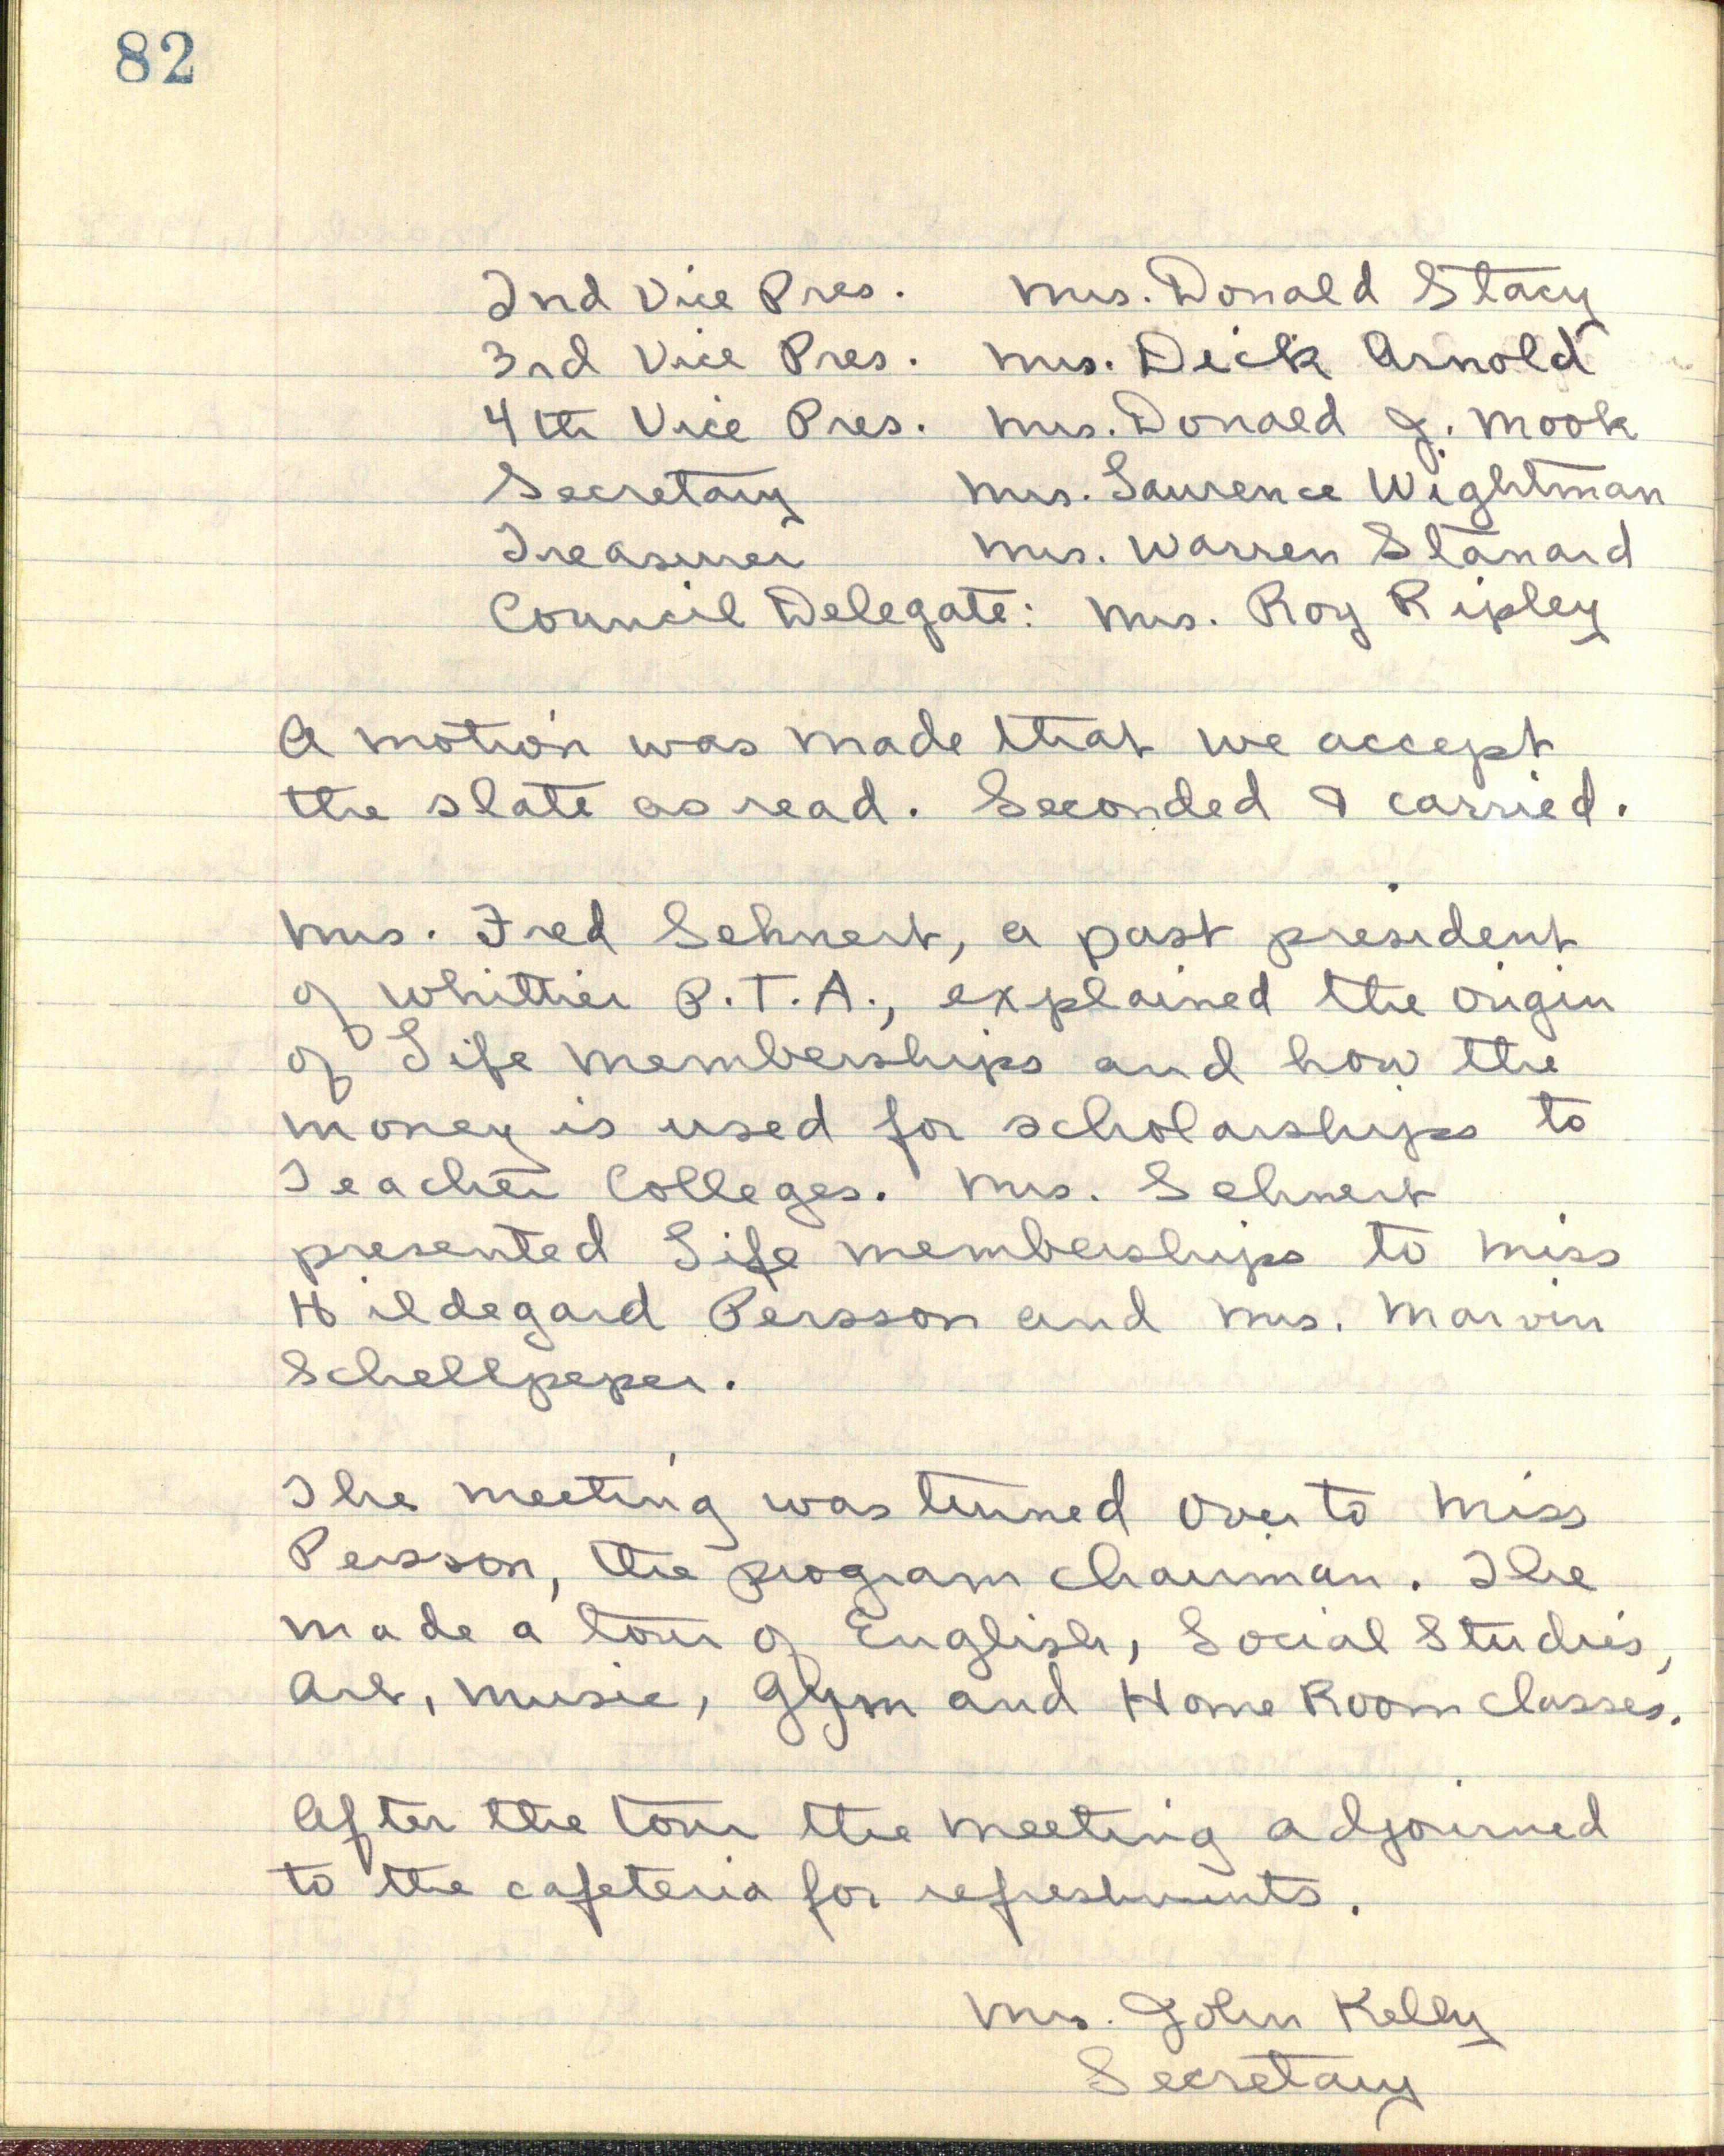 82
2nd Vice Pres. Mrs. Donald Stacy
3rd Vice Pres. Mrs. Dick Arnold
4th Vice Pres. Mrs. Donald J. Mook
Secretary Mrs. Laurence Wightman
Treasurer Mrs. Warren Stanard
Council Delegate: Mrs. Roy Ripley
A motion was made that we accept
the slate as read. Seconded & carried.
Mrs. Fred Sehnert, a past president
of Whittier P.T.A., explained the origin
of Life memberships and how the
money is used for scholarships to
Teacher Colleges. Mrs. Sehnert
presented Life memberships to Miss
Hildegard Persson and Mrs. Marvin
Schellpeper.
The meeting was turned over to Miss
Persson, the program chairman. The
made a tour of English, Social Studies,
Art, Music, Gym and Home Room classes.
After the tour the meeting adjourned
to the cafeteria for refreshments.
Mrs. John Kelly
Secretary